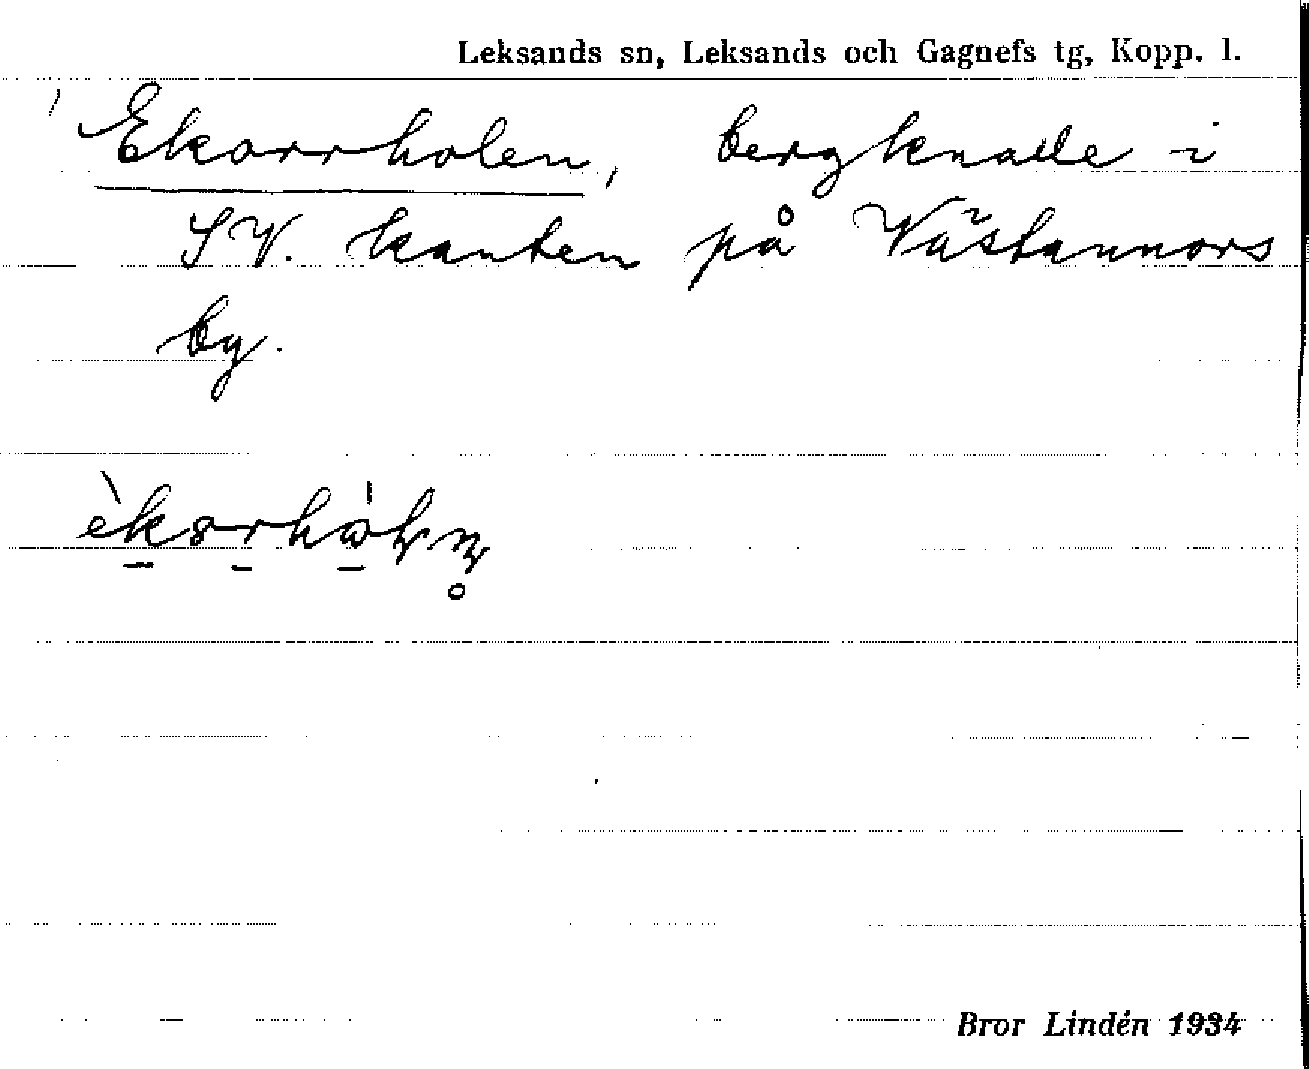 Leksands sn, Leksands och Gagnefs tg, Kopp. l.
Ekorrholen, bergknalle i
SV. kanten på Västannors
by.
Bror Lindén 1934